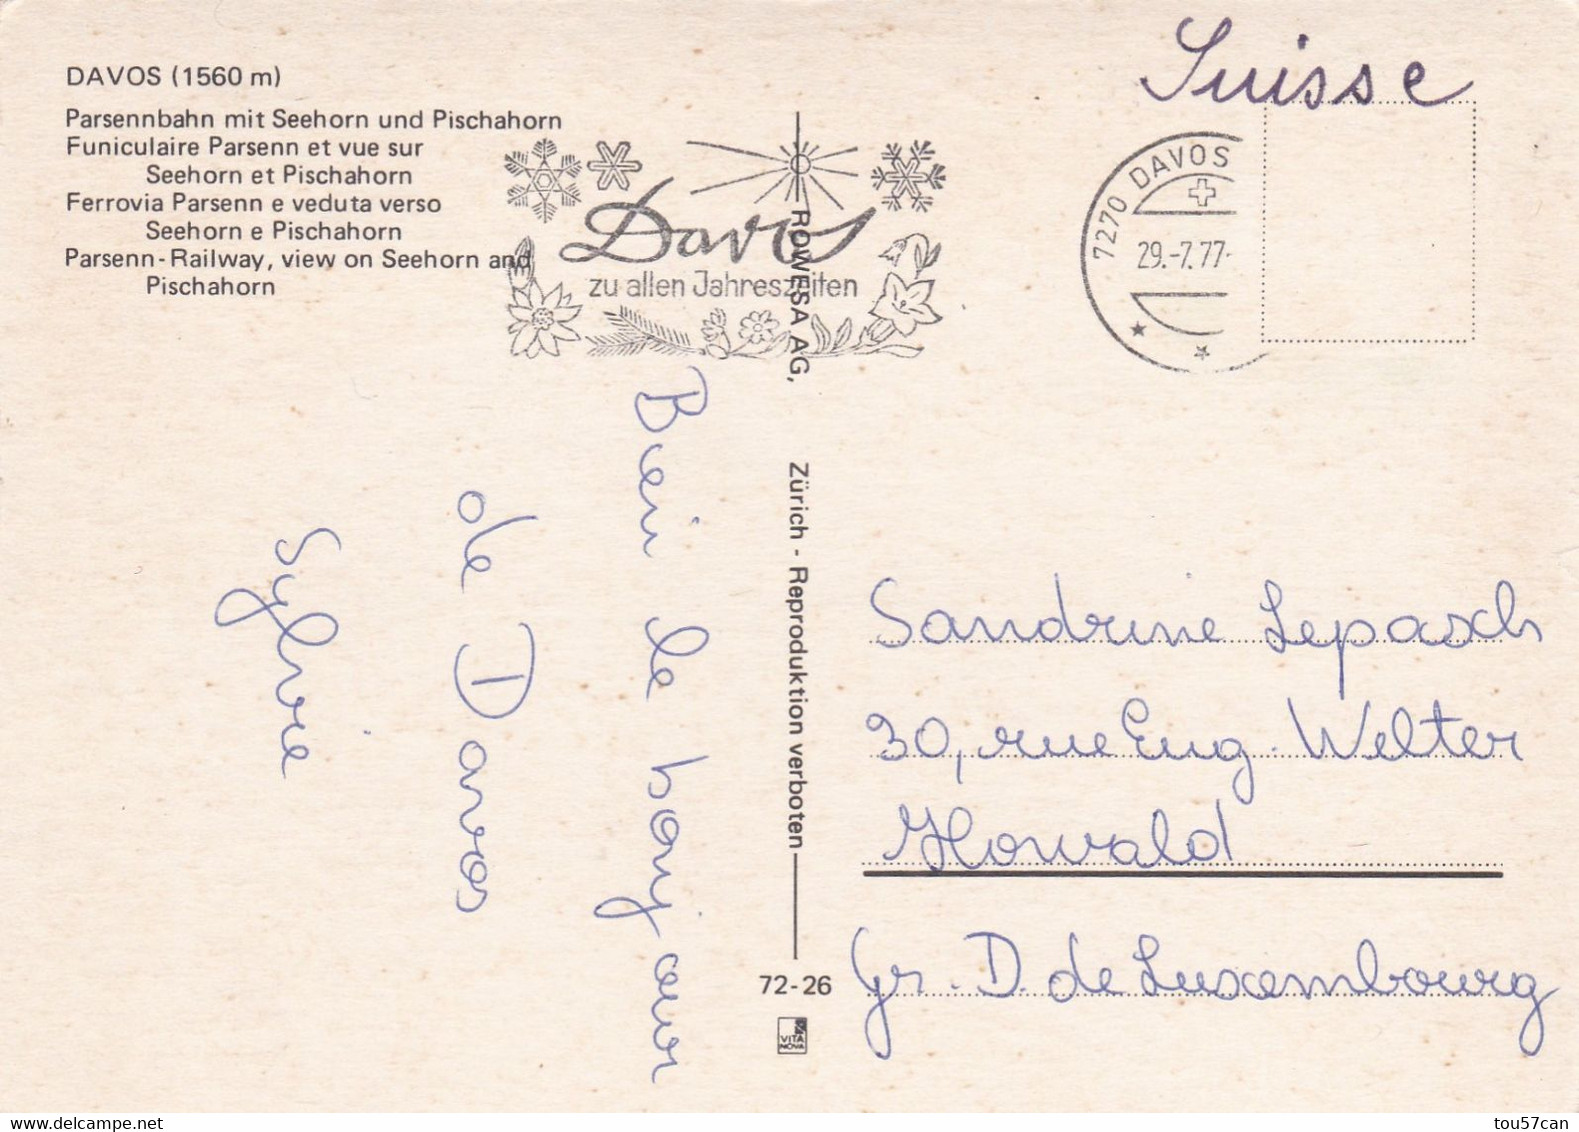 DAVOS (1560 m)
Parsennbahn mit Seehorn und Pischahorn
Funiculaire Parsenn et vue sur
Seehorn et Pischahorn
Ferrovia Parsenn e veduta verso
Seehorn e Pischahorn
Parsenn-Railway, view on Seehorn and
Pischahorn
Davos
zu allen Jahreszeiten
Suisse
7270 DAVOS
29.-7.77-
Bien le bonjour
de Davos
Sylvie
ROWESA AG, Zürich - Reproduktion verboten
72-26
VITA
NOVA
Sandrine Lepasch
30, rue Eug. Welter
Howald
Gr. D. de Luxembourg
tou57can